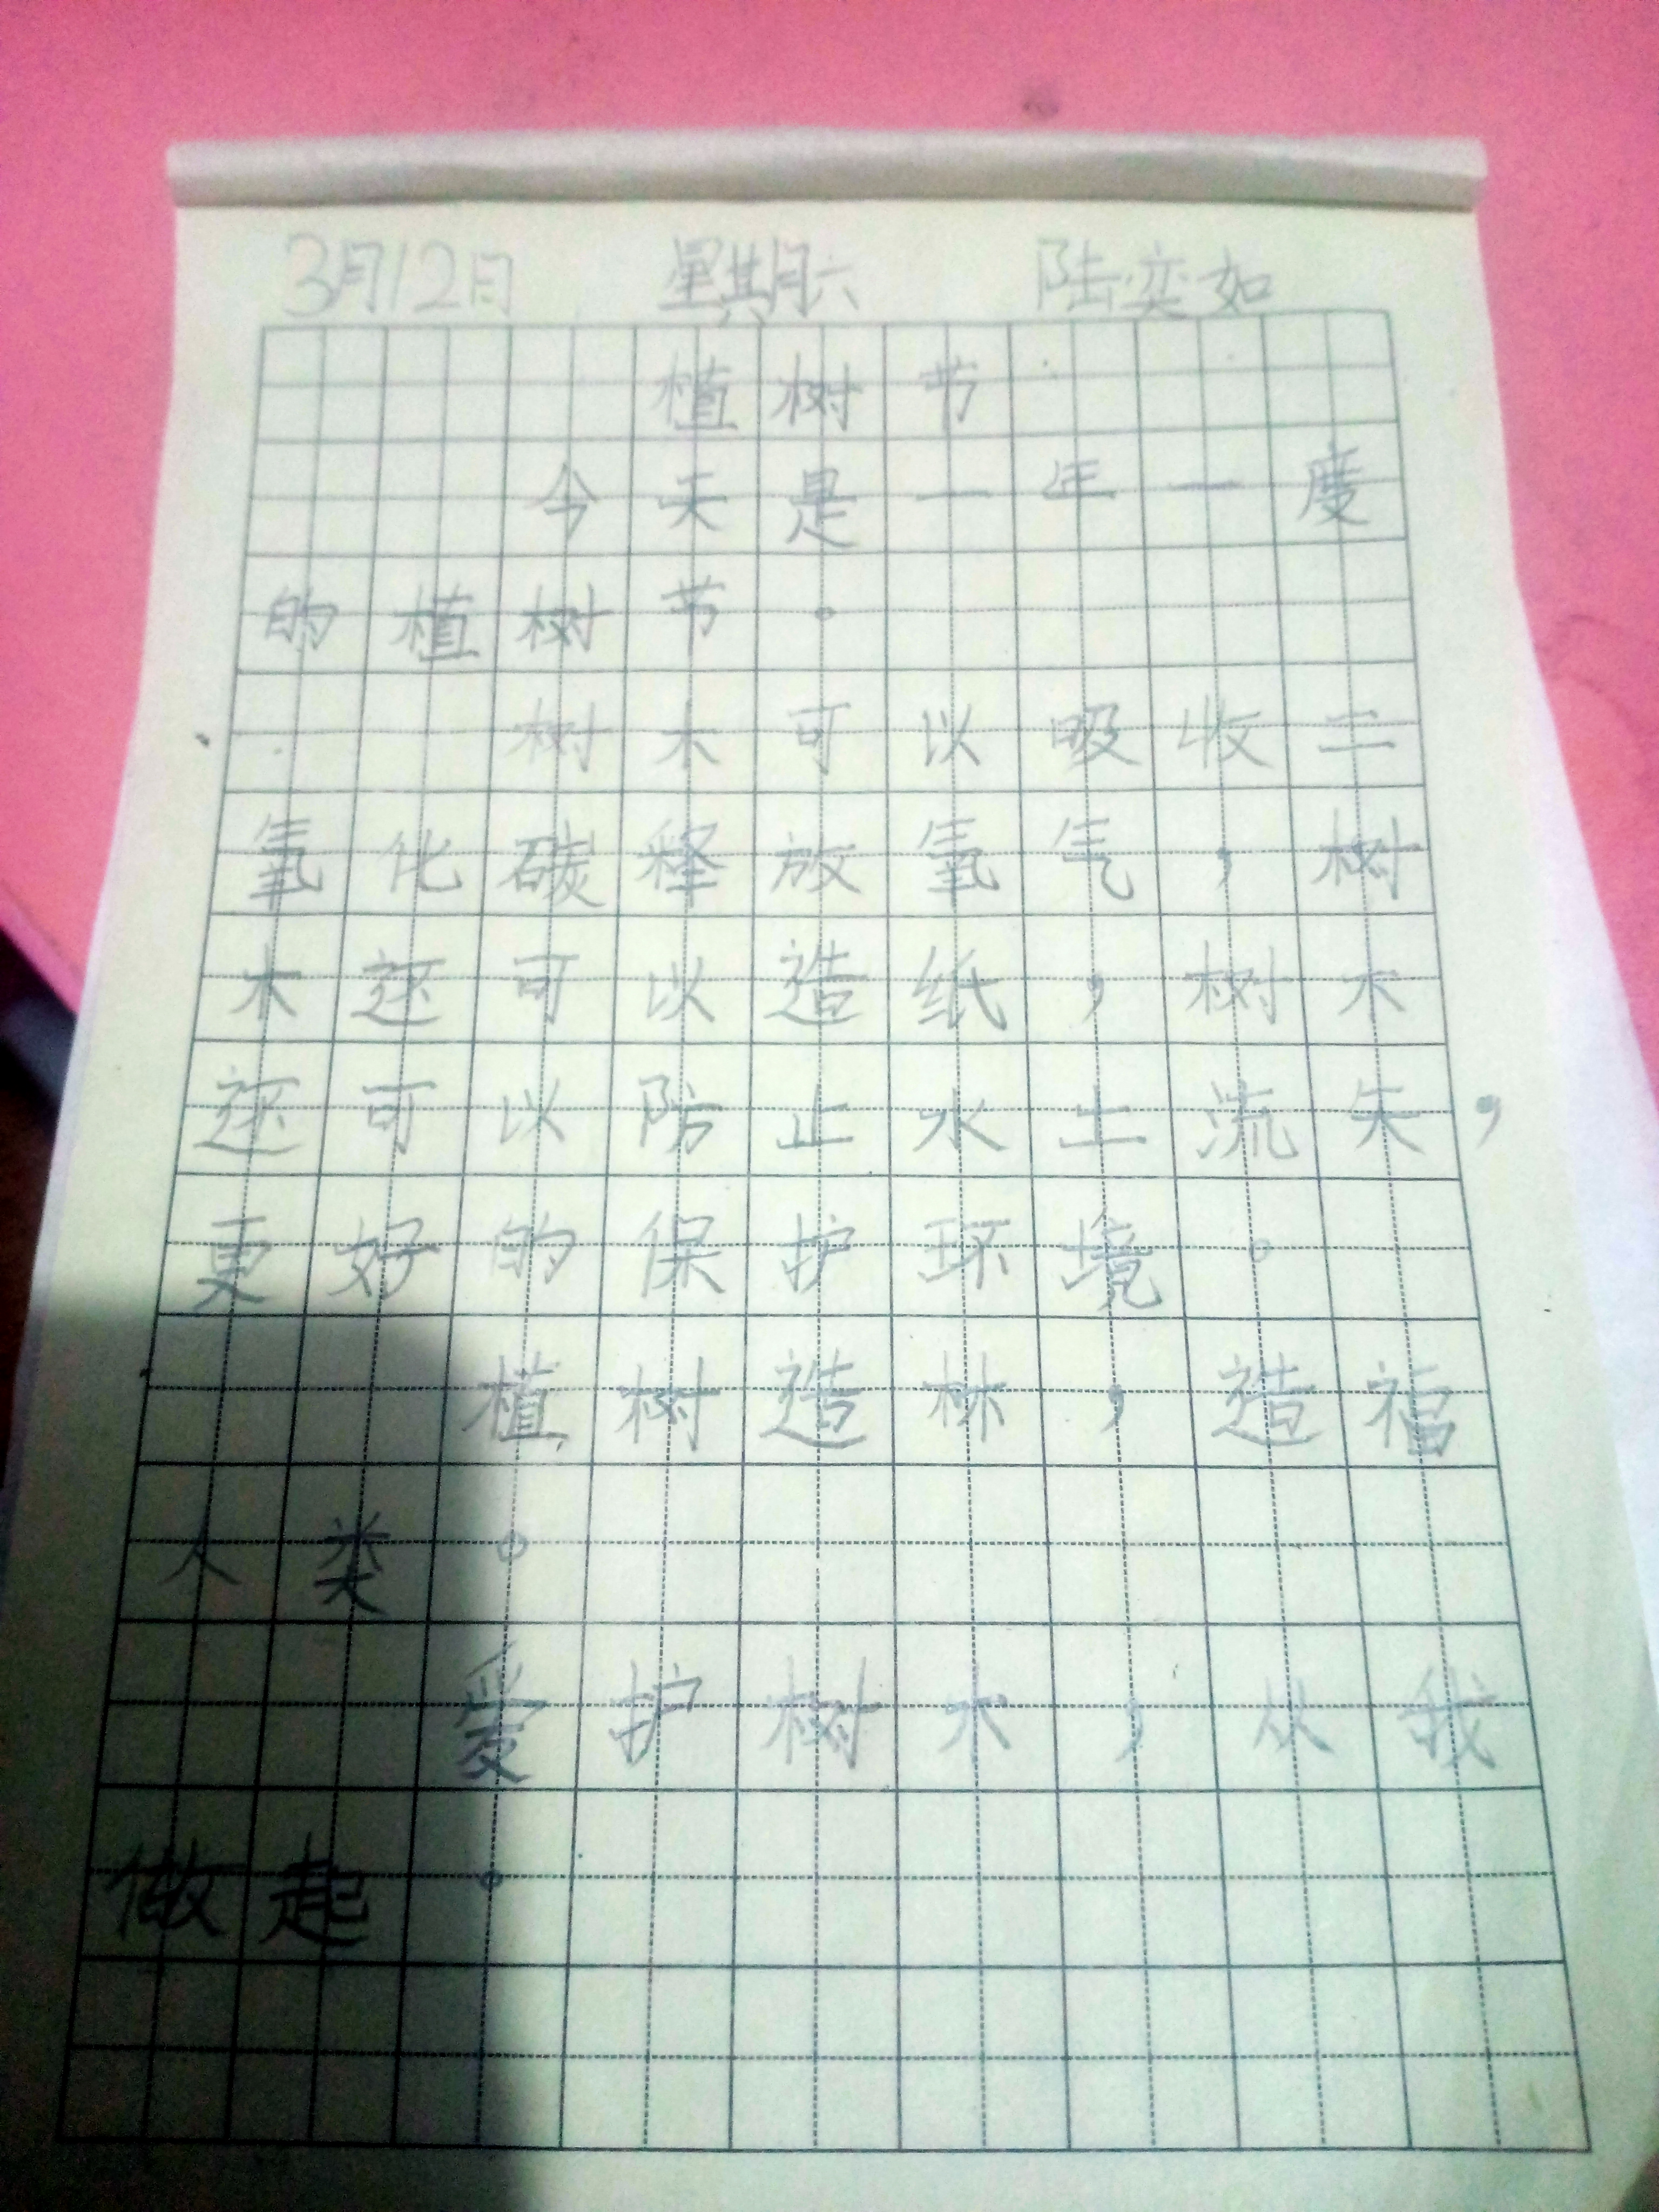 3月12日 星期六 陆奕如
植树节
今天是一年一度
的植树节。
树木可以吸收二
氧化碳释放氧气，树
木还可以造纸，树木
还可以防止水土流失，
更好的保护环境。
植树造林，造福
人类。
爱护树木，从我
做起。